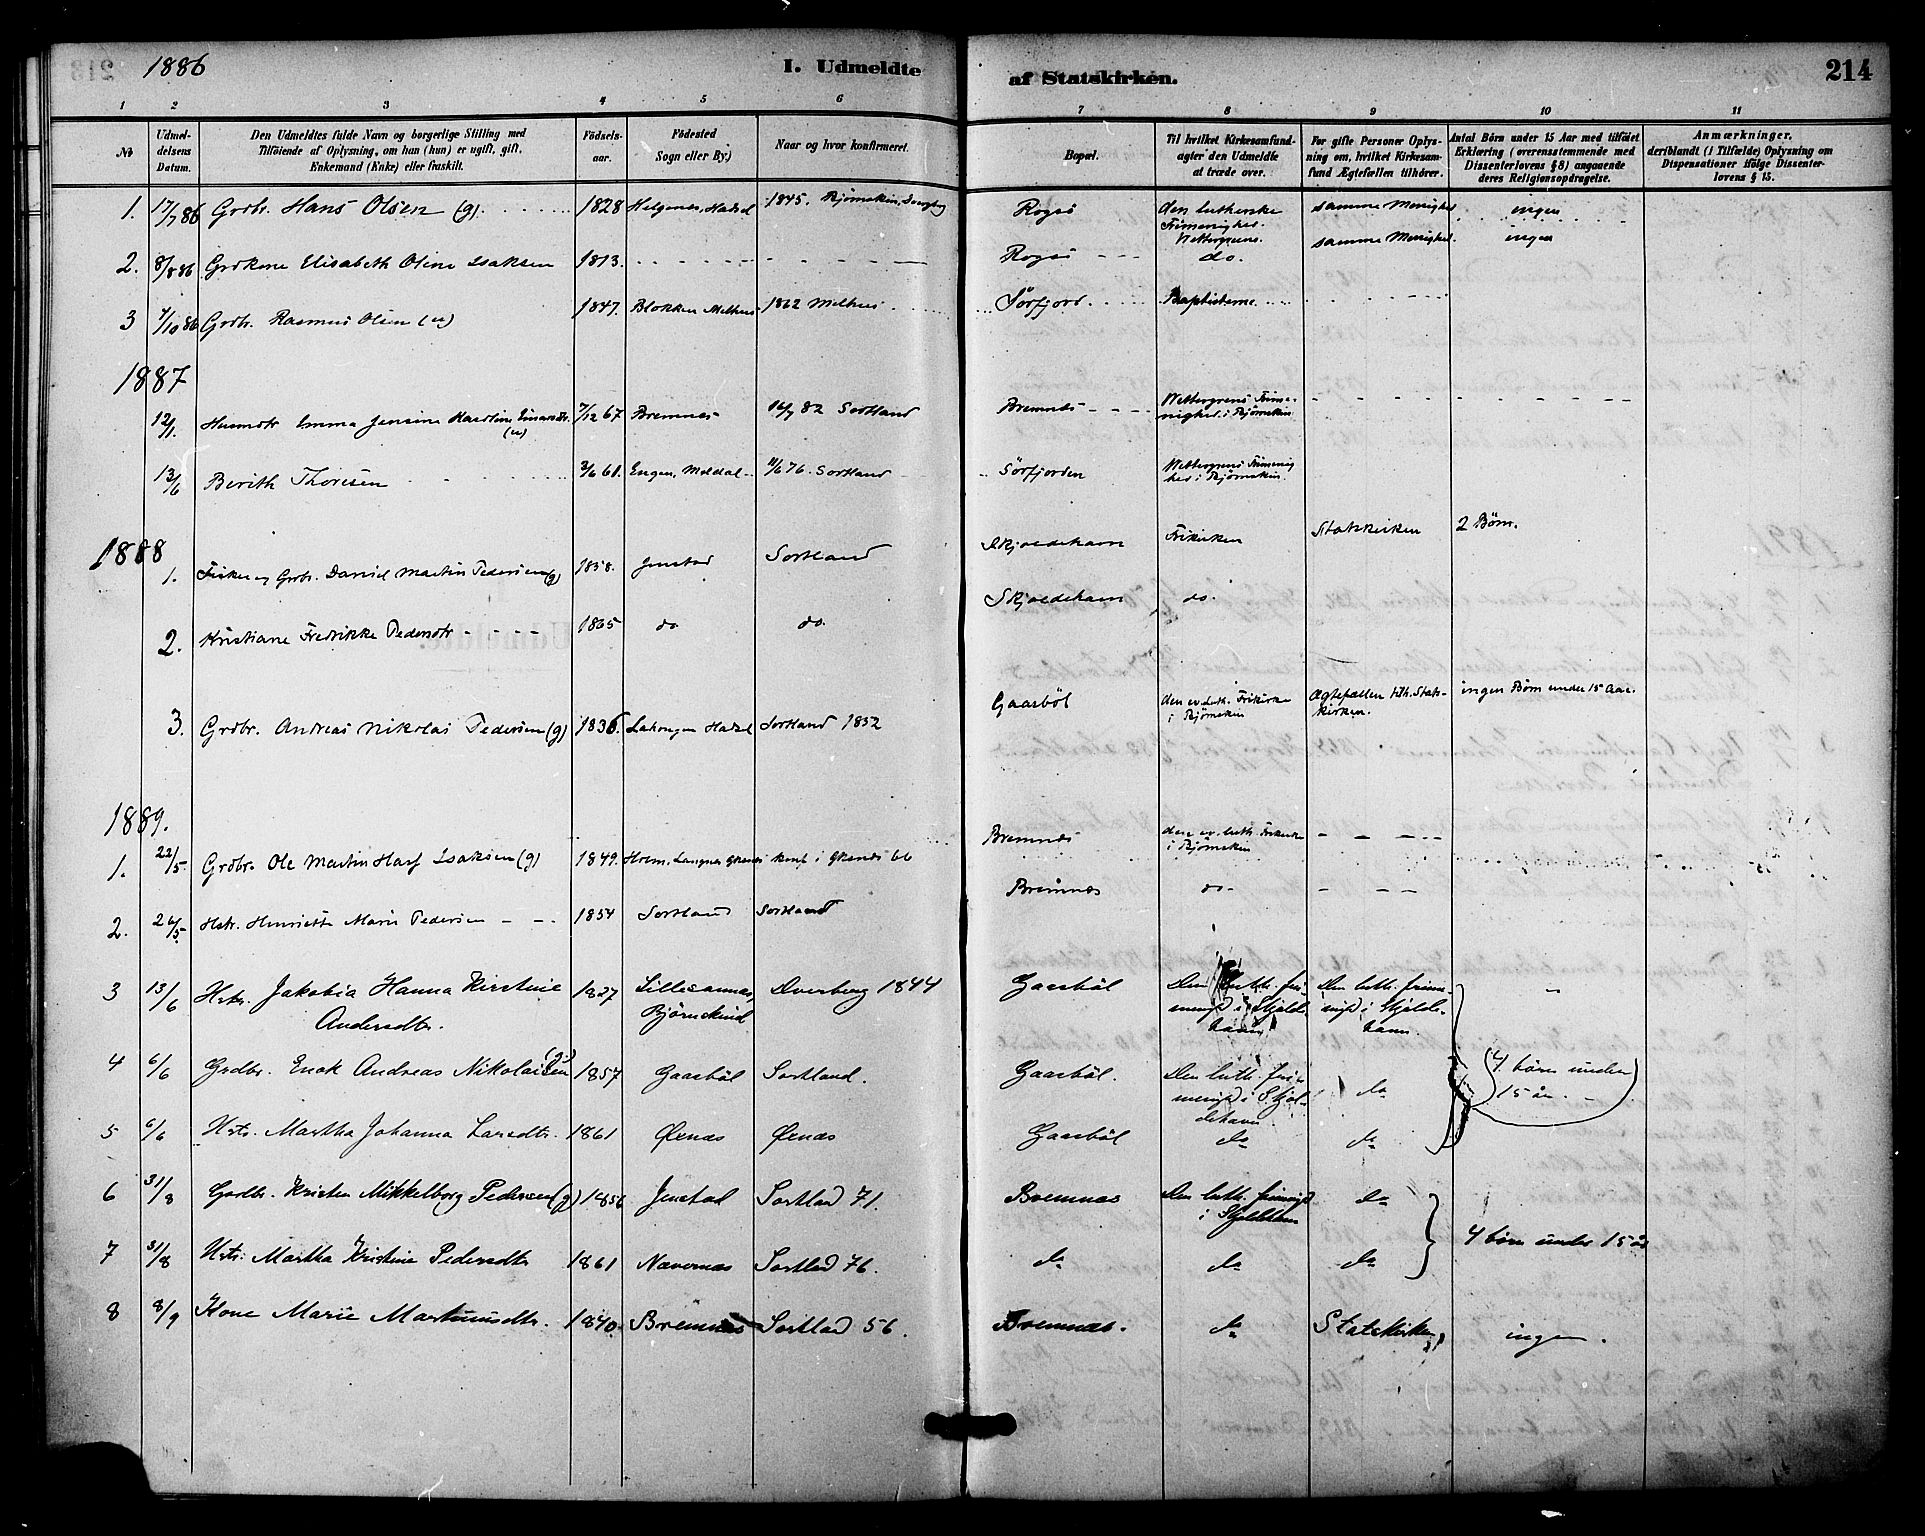 1886
I. Udmeldte
af Statskirken.
214
1 2 3 4 5 6 7 8 9 10 11
No
Udmel-
delsens
Datum.
Den Udmeldtes fulde Navn og borgerlige Stilling med
Tilføiende af Oplysning, om han (hun) er ugift, gift,
Enkemand (Enke) eller fraskilt.
Fødsels-
aar.
Fødested
Sogn eller By.)
Naar og hvor konfirmeret.
Bopæl.
Til hvilket Kirkesamfund
agter den Udmeldte
at træde over.
For gifte Personer Oplys-
ning om, hvilket Kirkesam-
fund Ægtefællen tilhører.
Antal Børn under 15 Aar med tilføiet
Erklæring (overensstemmende med
Dissenterlovens § 8) angaaende
deres Religionsopdragelse.
Anmærkninger,
deriblandt (i Tilfælde) Oplysning om
Dispensationer ifølge Dissenter-
lovens § 15.
1. 17/7 86 Grdbr. Hans Olsen (g) 1828 Helgenes, Hadsel 1845. Bjørnskin, Dverberg Rogsø den lutherske samme Menighed ingen
Frimenighed.
Wettergrens. samme Menighed. ingen
2. 8/8 86 Grdkone Elisabeth Oline Isaksen 1813. Rogsø do.
3 7/10 86 Grdbr. Rasmus Olsen (u) 1847. Blokken Melhus 1862 Melhus Sørfjord Baptisterne
1887
12/1. Huusmdtr Emma Jensine (u) 7/12 67 Bremnes 16/7 82 Sortland Bremnæs Wettergrens Frime-
nighed i Bjørnskin
13/6 Berith Thoresen 3/6 61. Engen, Meldal 11/6 76. Sortland Sörfjorden Wettergrens Frimenig
hed i Bjørnskin.
1888
1. Fisker og Grdbr. Daniel Martin Pedersen (g) 1858. Jenstad Sortland Skjoldehavn Frikirken Statskirken 2 Børn.
2. Kristiane Fredrikke Pedersdtr 1865 do do. Skjoldehavn do.
3. Grdbr. Andreas Nikolai Pedersen (g) 1836. Hadsel Sortland 1852 Gaasböl den ev. luth. Frikirke Ægtefællen tilh. Stats- ingen Børn under 15 Aar.
i Bjørnskin kirken.
1889.
1. 22/5. Grdbr. Ole Martin Isaksen (g) 1849. konf i 66 Bremnæs den ev. luth. Frikirke
i Bjørnskin
2. 26/5. Hstr. Henriette Marie Pedersen 1854 Sortland Sortland Bremnæs do
3 13/6 Hstr. Jakobia Hanna Kirstine 1827 Dverberg 1844 Gaasböl Den luth. fri- Den luth. frime-
Andersdtr. Bjørnskind menigh i Skjolde- nigh i Skjolde-
havn havn.
4 6/6 Grdbr. Enok Andreas Nikolaisen (g) 1857 Gaasböl Sortland. Gaasböl. Den luth. fri- do (4 børn under
menigh i Skjol- 15 år.)
dehavn
5 6/6 Hstr. Martha Johanna Larsdtr. 1861 Øxnæs Øxnæs Gaasböl do do
6 31/8 Gardbr. Kristen Mikkelborg Pedersen (g) 1856 Jenstad Sortland 71. Bremnæs Den luth. frimenigh do
i Skjoldehavn
4 børn under 15 år
7 31/8 Hstr. Martha Kristine Pedersdtr 1861 Nævernæs Sortland 76. do do do
8 8/9 Kone Marie Martinusdtr. 1840. Bremnæs Sortland 56. Bremnæs. do Statskirken ingen.